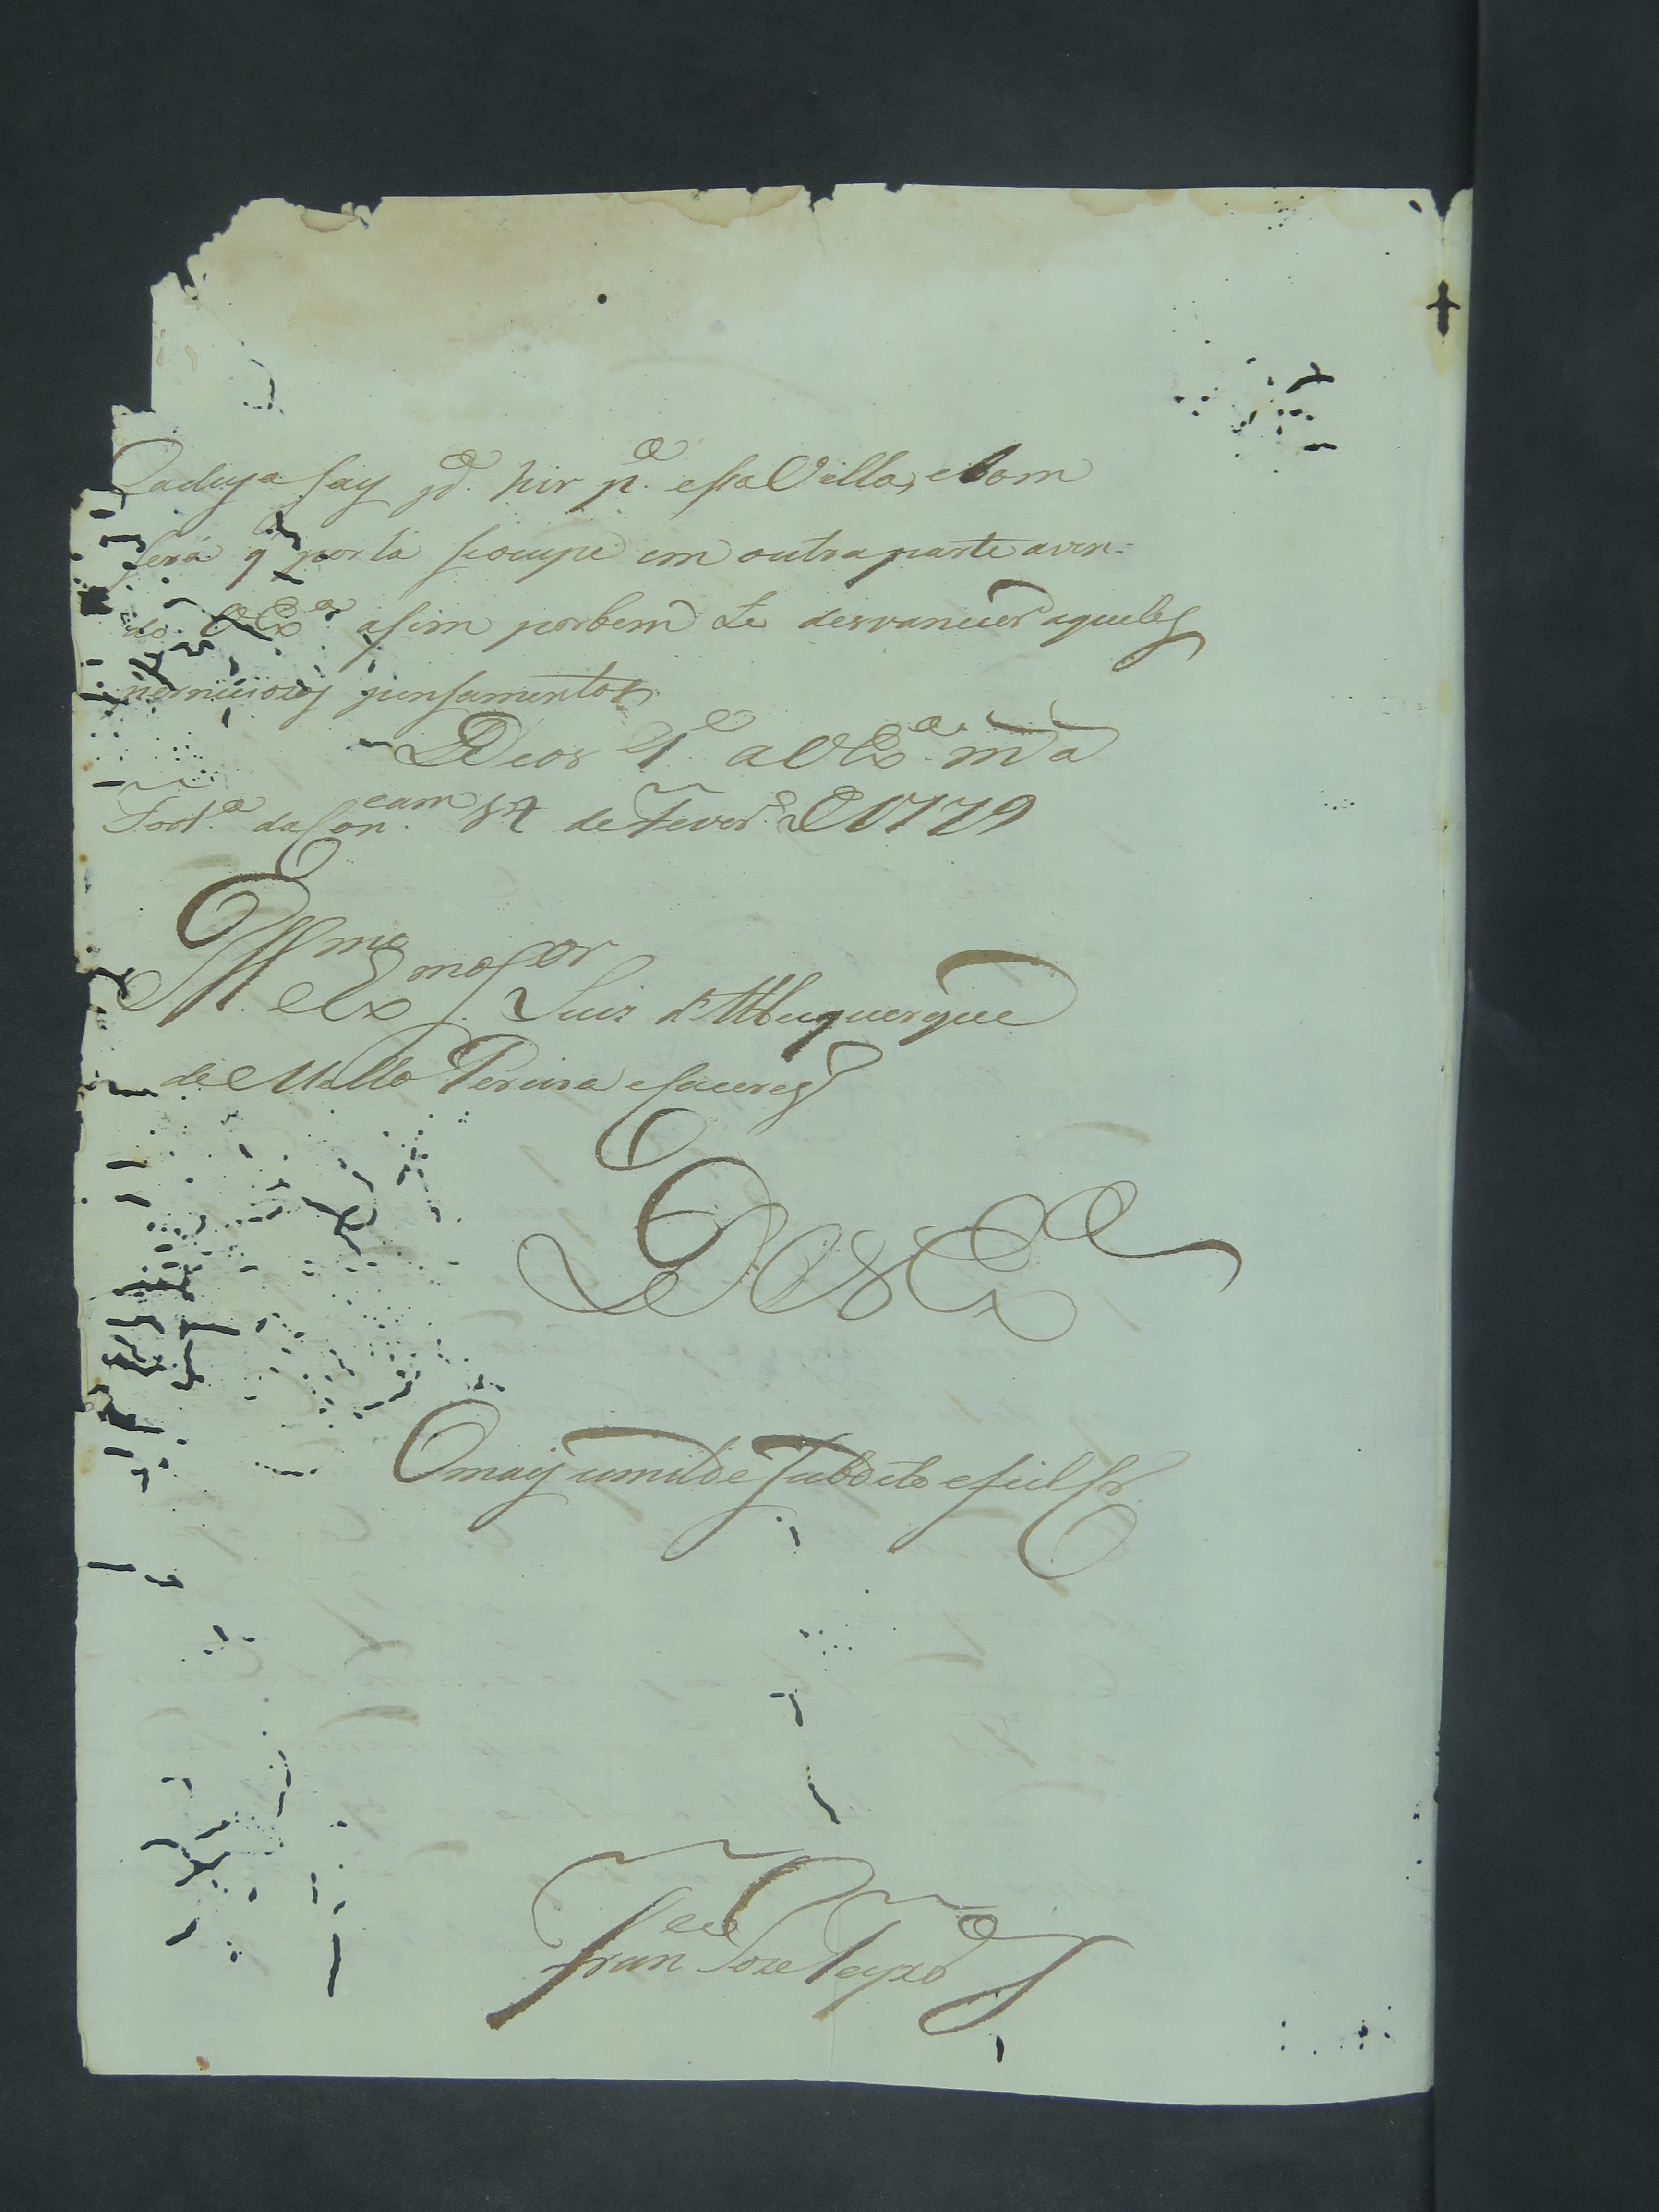 Cadeya Say pᵃ. hir pᵃ. esta Villa, e bom
será q̃ por lá se ocupe em outra parte aven-
do VExᵃ asim por bem Le desvanecer aqueles
perniciozos pensamentos
Deos Gᵉ a VExᵃ. m̃ ã
Fortᵃ da Conᶜᵃᵐ 14 de Feverº D 1779
Illᵐᵒ e Exᵐᵒ Sᵒʳ Luiz d'Albuquerque
de Mello Pereira e Caceres
De VExᵃ
O mays umilde Subdito e fiel Cr.
Franᶜᵒ Joze Teyxrª